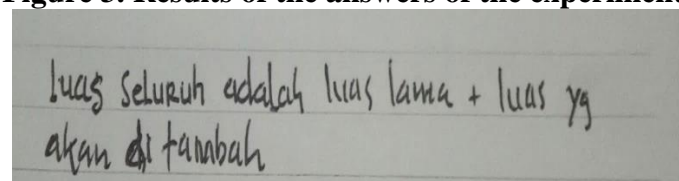 Figure 3. Results of the answers of the experiment
luas seluruh adalah luas lama + luas yg
akan di tambah